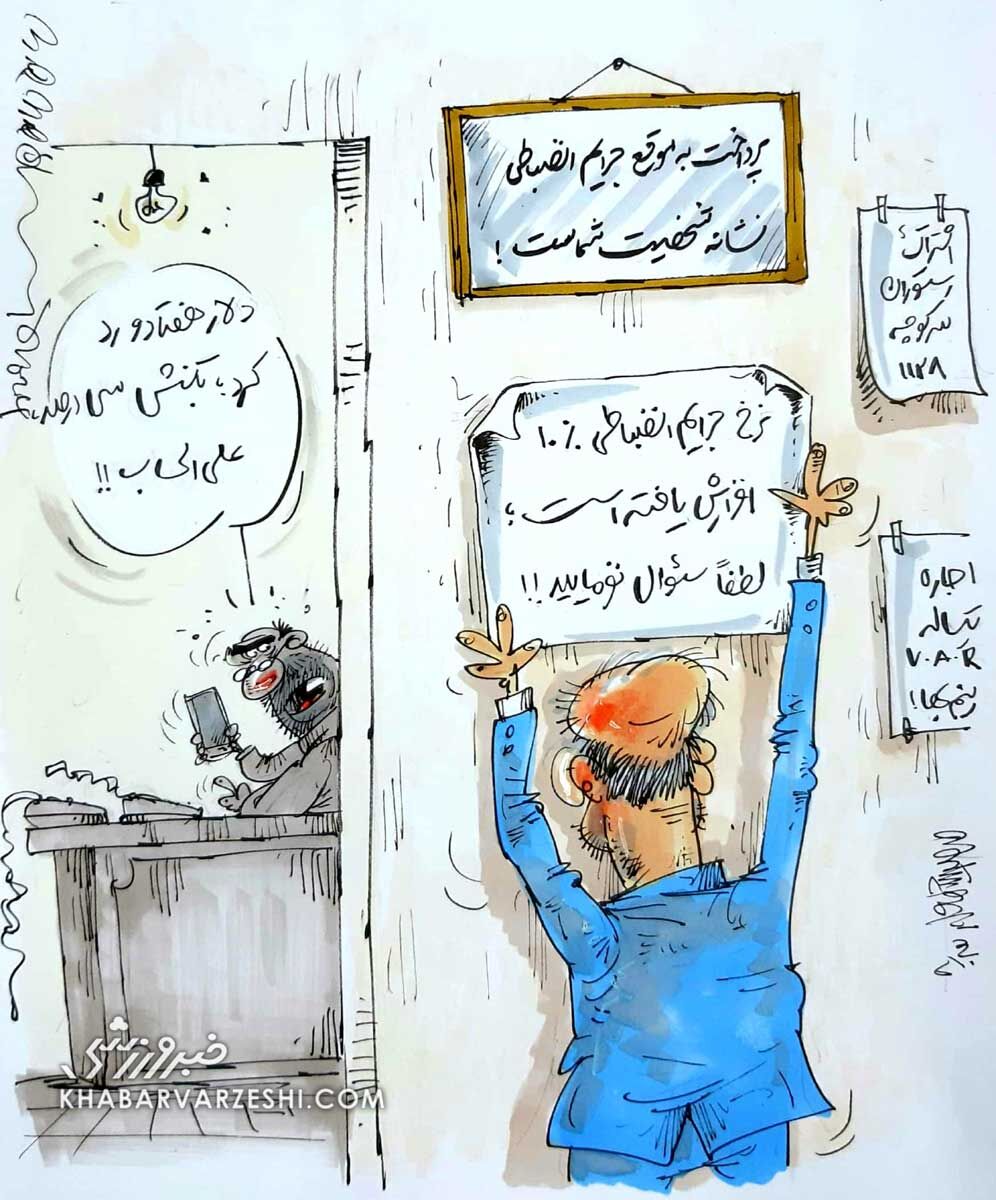 پرداخت به موقع جرایم انضباطی
نشانه شخصیت شماست !
نرخ جرایم انضباطی ۱۰٪
افزایش یافته است ؛
لطفاً سئوال نفرمایید !!
دلار هفتادو رد
کرد، بکنش سی درصد،
علی الحساب !!
اشتراک
رستوران
سر کوچه
۱۱۲۸
اجاره
یکساله
V.A.R
خبرورزشی
KHABARVARZESHI.COM